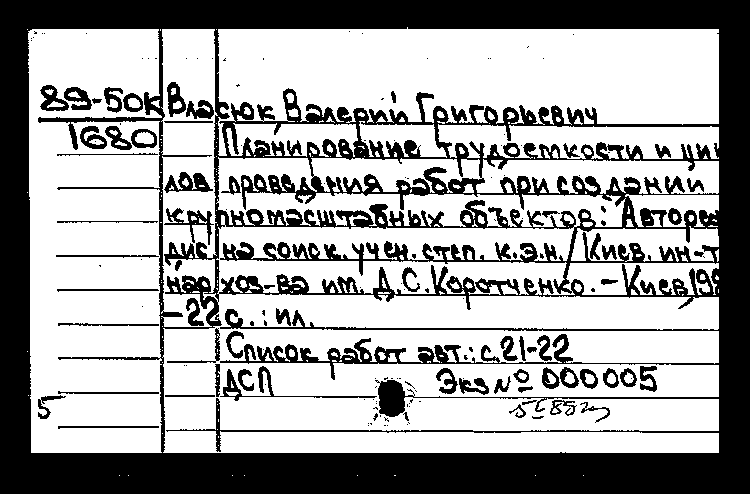 89-50к Власюк Валерий Григорьевич
1680 Планирование трудоемкости и цик
лов проведения работ при создании
крупномасштабных объектов: Авторе
дис. на соиск. учен. степ. к.э.н. / Киев. ин-т
нар. хоз-ва им. Д.С. Коротченко. – Киев, 198
–22 с. : ил.
Список работ авт.: с. 21-22
ДСП Экз № 000005
5